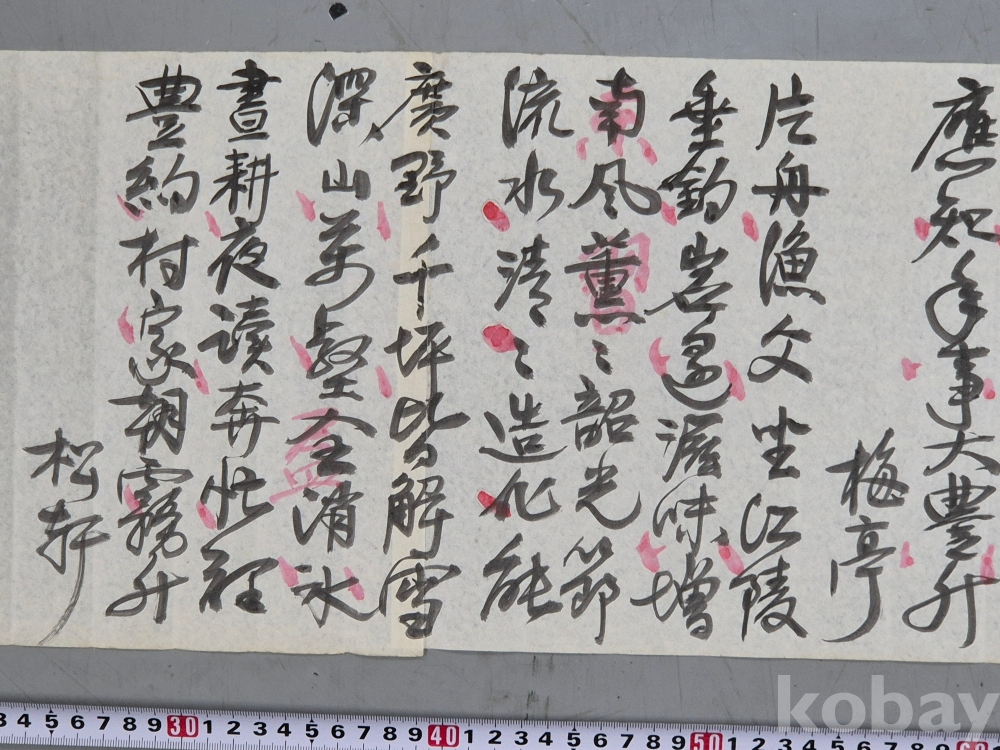 應知年事大豊升
梅亭
片舟漁父坐江陵
垂釣岩邊滋味增
南風薰〻韶光節
流水淸〻造化能
廣野千坪皆解雪
深山萬壑全消氷
晝耕夜读奔忙裡
豊約村家朝霧升
松軒
kobay
3 4 5 6 7 8 9 30 1 2 3 4 5 6 7 8 9 40 1 2 3 4 5 6 7 8 9 50 1 2 3 4 5 6 7 8 9